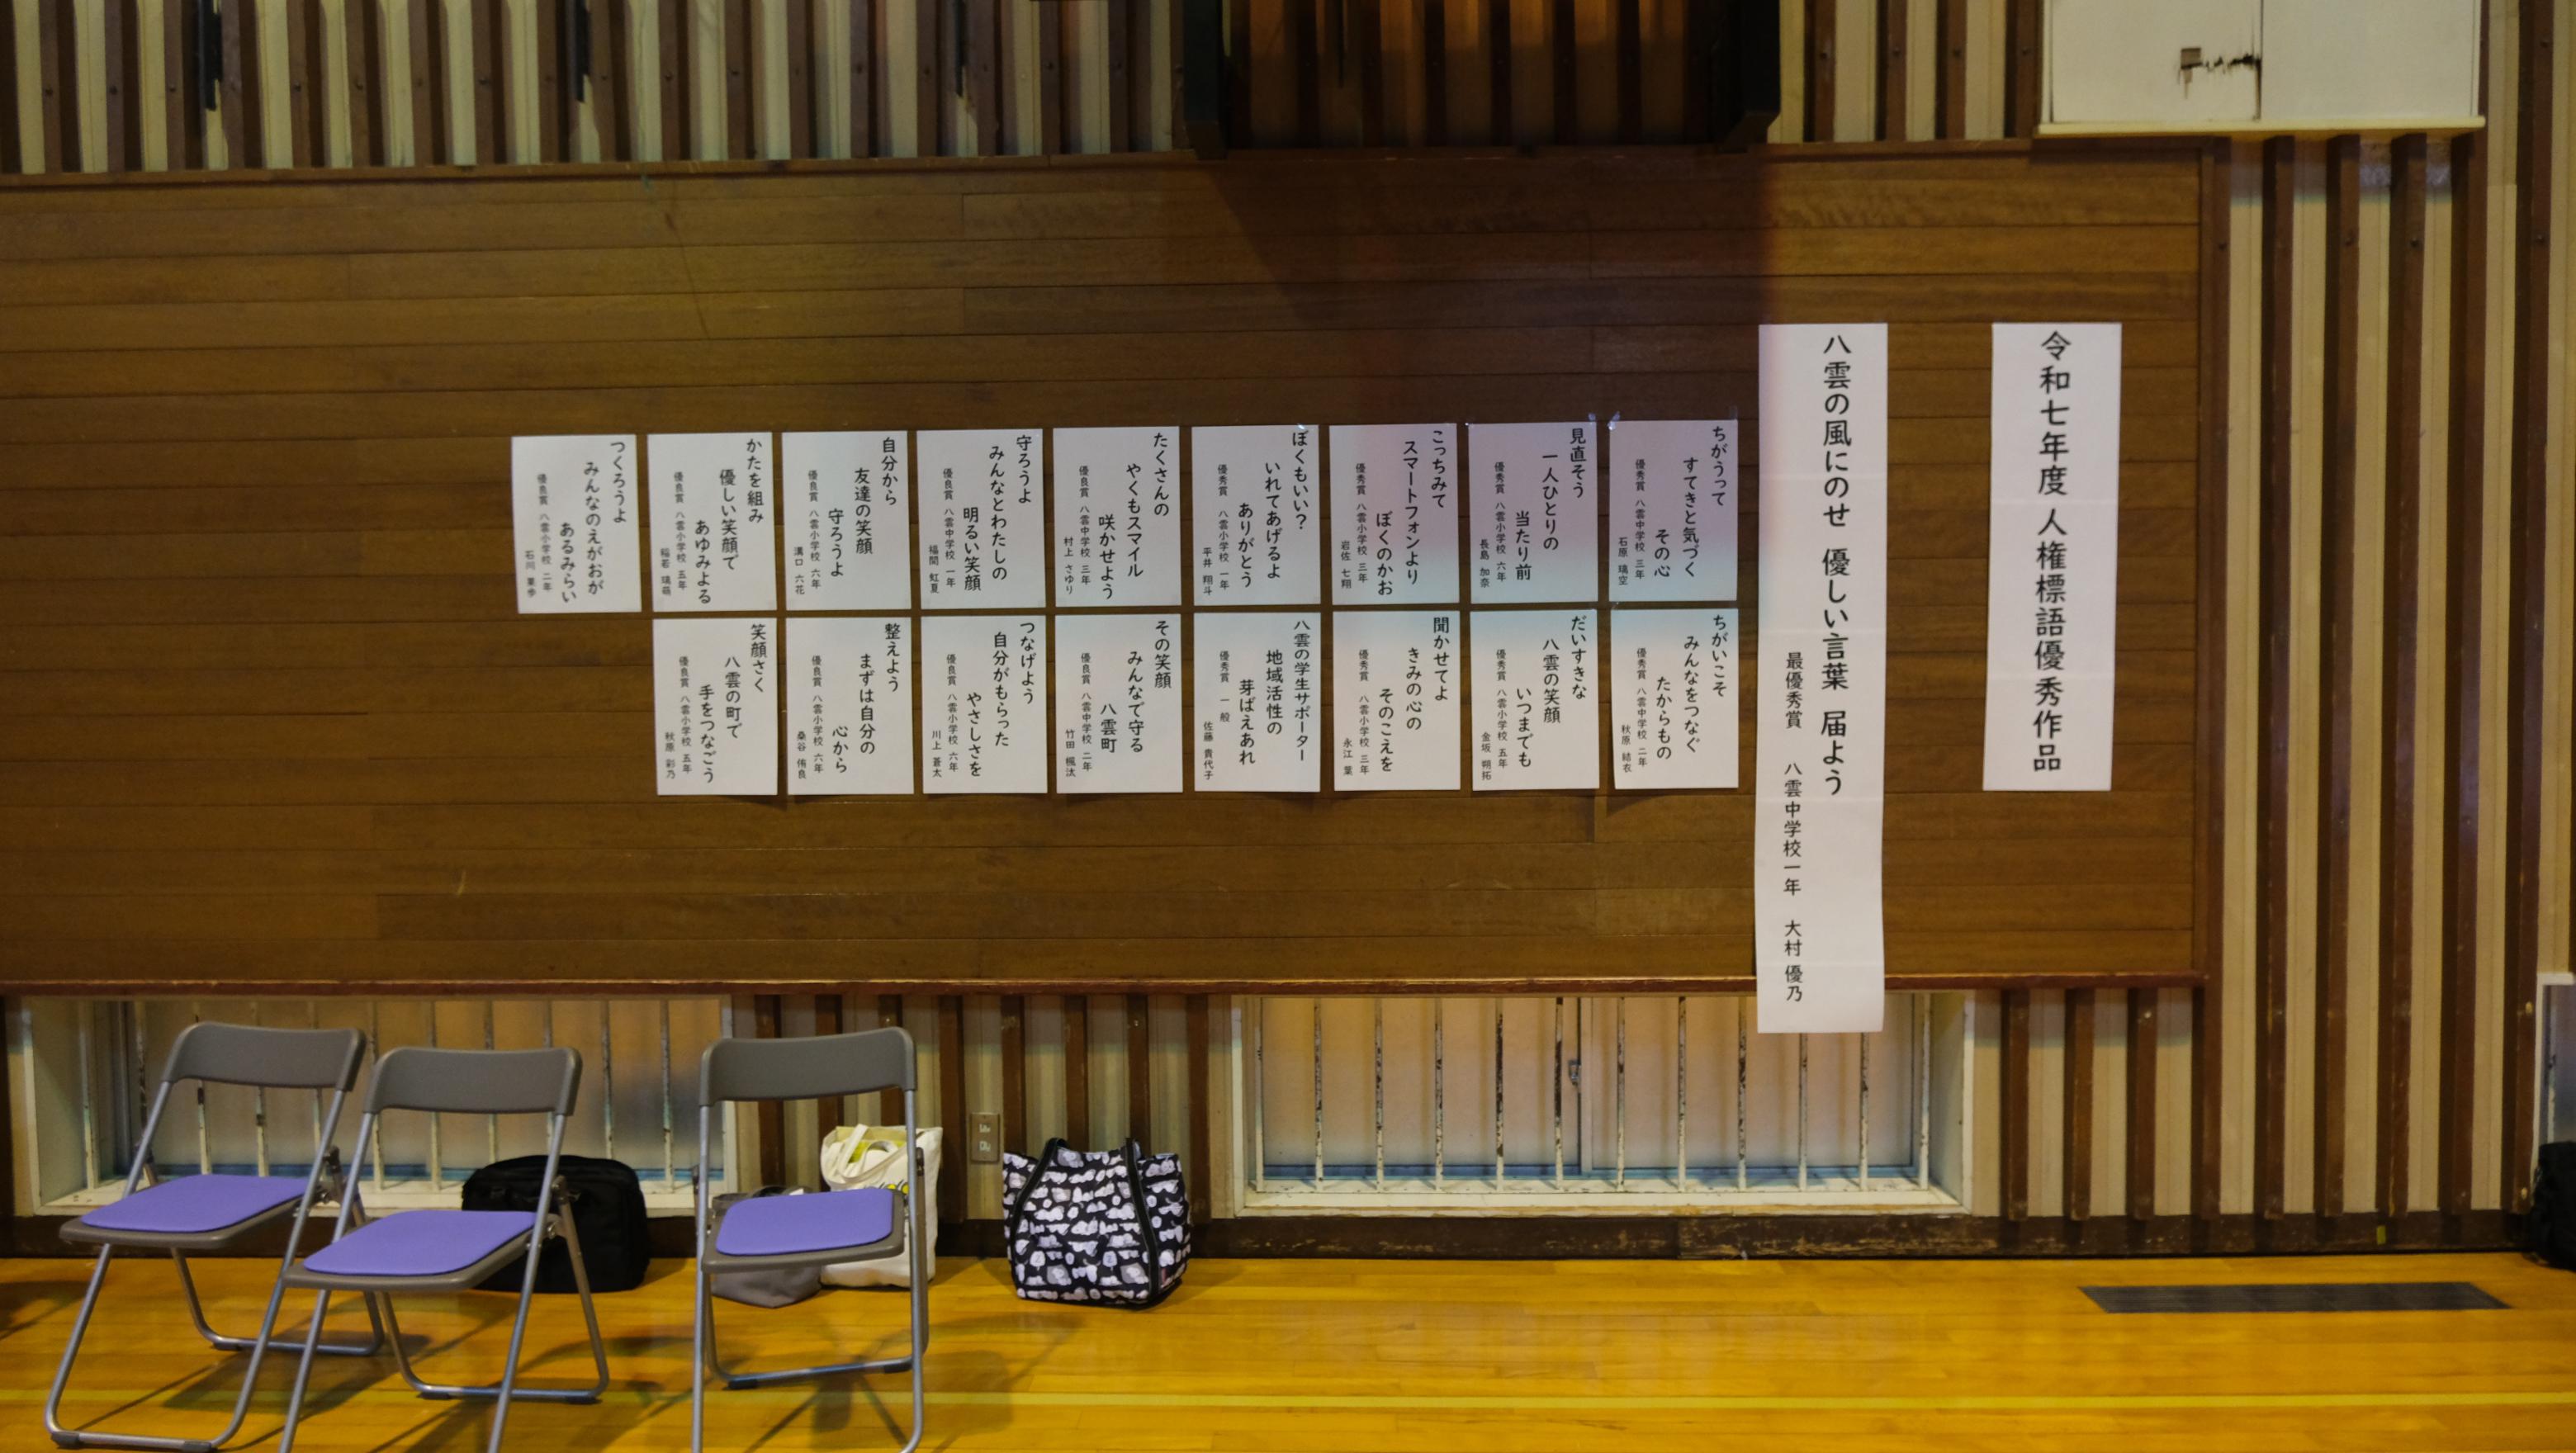 令和七年度 人権標語優秀作品
八雲の風にのせ 優しい言葉 届よう
最優秀賞 八雲中学校一年 大村 優乃
ちがうって
すてきと気づく
その心
優秀賞 八雲中学校 三年
石原 璃空
見直そう
一人ひとりの
当たり前
優秀賞 八雲小学校 六年
長島 加奈
こっちみて
スマートフォンより
ぼくのかお
優秀賞 八雲小学校 三年
岩佐 七翔
ぼくもいい?
いれてあげるよ
ありがとう
優秀賞 八雲小学校 一年
平井 翔斗
たくさんの
やくもスマイル
咲かせよう
優良賞 八雲中学校 三年
村上 さゆり
守ろうよ
みんなとわたしの
明るい笑顔
優良賞 八雲中学校 一年
福間 虹夏
自分から
友達の笑顔
守ろうよ
優良賞 八雲小学校 六年
溝口 六花
かたを組み
優しい笑顔で
あゆみよる
優良賞 八雲小学校 五年
稲若 璃萌
つくろうよ
みんなのえがおが
あるみらい
優良賞 八雲小学校 二年
石川 果歩
ちがいこそ
みんなをつなぐ
たからもの
優秀賞 八雲中学校 二年
秋原 結衣
だいすきな
八雲の笑顔
いつまでも
優秀賞 八雲小学校 五年
金坂 朔拓
聞かせてよ
きみの心の
そのこえを
優秀賞 八雲小学校 三年
永江 葉
八雲の学生サポーター
地域活性の
芽ばえあれ
優秀賞 一般
佐藤 貴代子
その笑顔
みんなで守る
八雲町
優良賞 八雲中学校 二年
竹田 楓汰
つなげよう
自分がもらった
やさしさを
優良賞 八雲小学校 六年
川上 蒼太
整えよう
まずは自分の
心から
優良賞 八雲小学校 六年
桑谷 侑良
笑顔さく
八雲の町で
手をつなごう
優良賞 八雲小学校 五年
秋原 彩乃